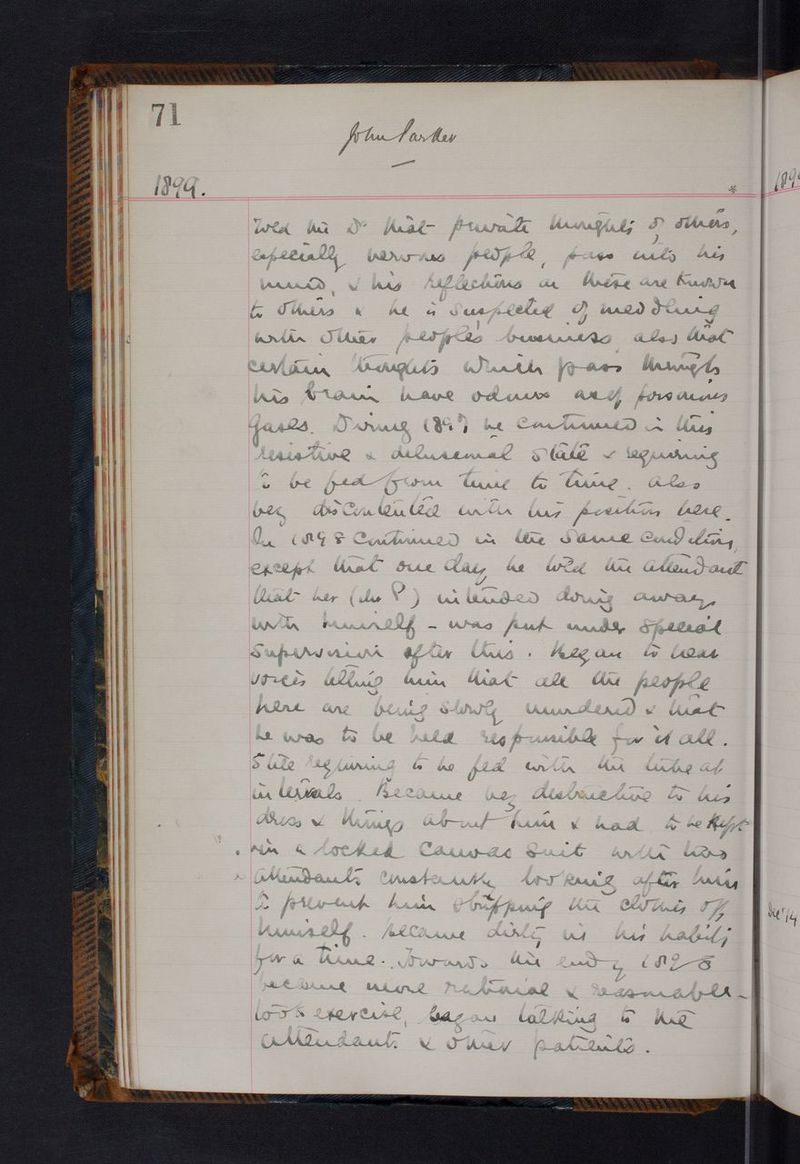 71
John Parker
1899.
189
told the Dr that private thoughts of others,
especially nervous people, pass into his
mind, & his reflections on these are known
to others & he is suspected of meddling
with other people's business also that
certain thoughts which pass through
his brain have odours as of poisonous
gases. During 1897 he continued in this
resistive & delusional state & requiring
to be fed from time to time. also
very discontented with his position here.
In 1898 continued in the same condition,
except that one day he told the attendant
that her (Mr P) intended doing away
with himself - was put under special
supervision after this. Began to hear
voices telling him that all the people
here are being slowly murdered & that
he was to be held responsible for it all.
Still requiring to be fed with the tube at
intervals. Became very destructive to his
dress & things about him & had to be kept
in a locked canvas suit with two
attendants constantly looking after him
to prevent him stripping the clothes off
himself. became dirty in his habits
for a time. Towards the end of 1898
became more rational & reasonable -
took exercise, began talking to the
attendants & other patients.
Dec 14